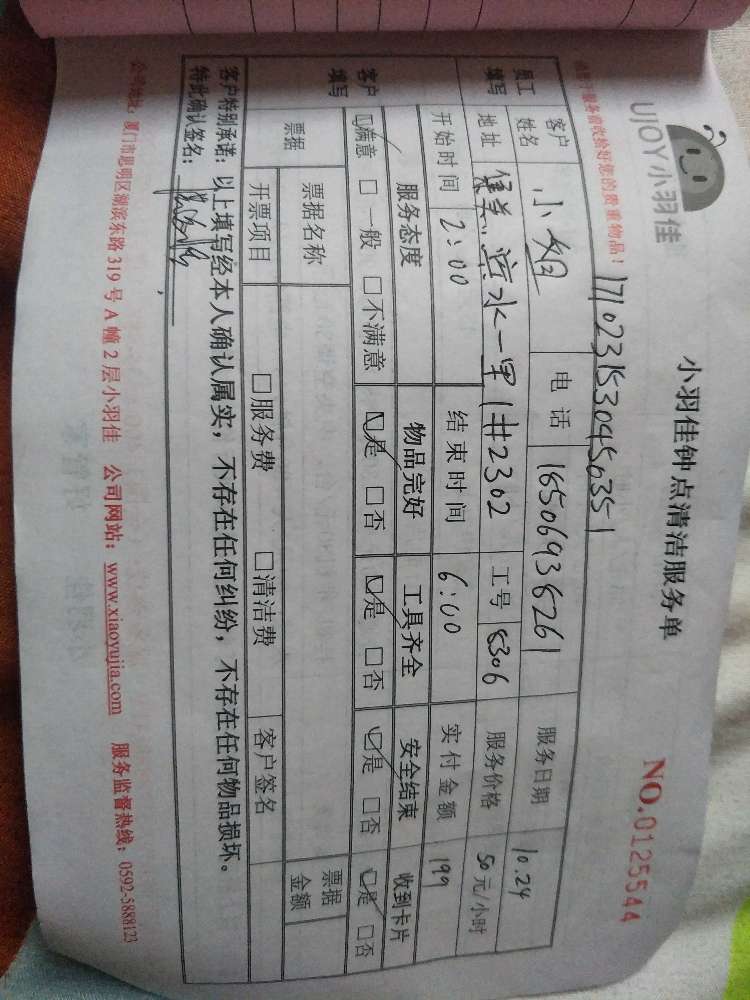 UJOY小羽佳
小羽佳钟点清洁服务单
NO.0125544
1710231530450351
由于服务前收给好您的贵重物品！
客户姓名 小姐 电话 16506938261 服务日期 10.24
员工填写 地址 滨水一里1#2302 工号 8306 服务价格 50元/小时
开始时间 2:00 结束时间 6:00 实付金额 199
客户填写 服务态度 物品完好 工具齐全 安全结束 收到卡片
☑满意 □一般 □不满意 ☑是 □否 ☑是 □否 ☑是 □否 ☑是 □否
票据 票据名称 票据金额
开票项目 □服务费 □清洁费 客户签名
客户特别承诺：以上填写经本人确认属实，不存在任何纠纷，不存在任何物品损坏。
特此确认签名：
公司地址：厦门市思明区湖滨东路319号A幢2层小羽佳 公司网站：www.xiaoyujia.com 服务监督热线：0592-5888123